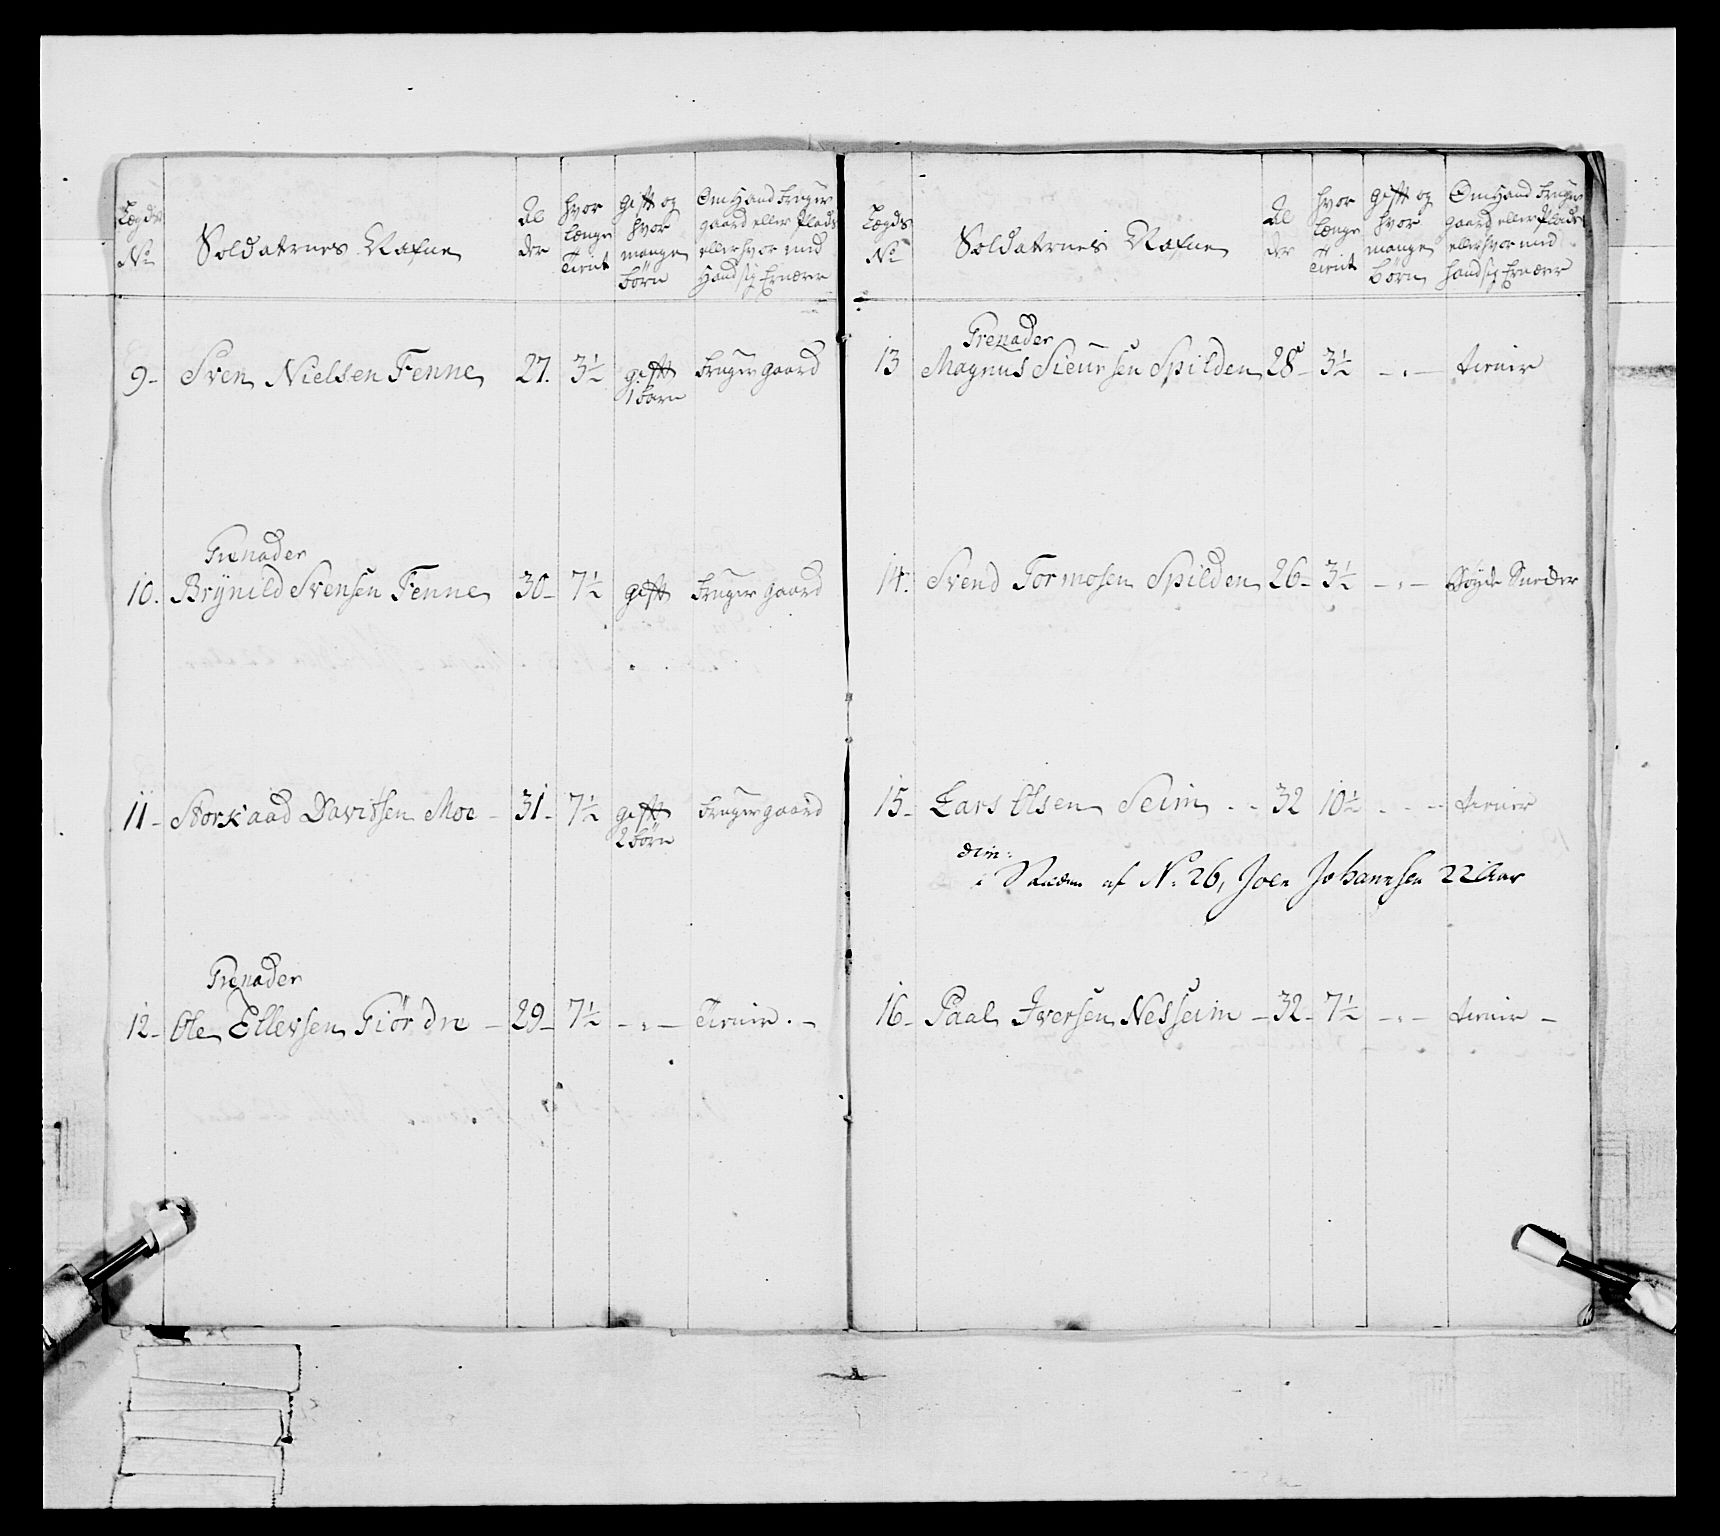 Lægds
No
Soldaternes Nafne
Al
der
hvor
længe
Tient
gift og
hvor
mange
börn
Om Hand bruger
gaard eller Plads
eller hvor med
Hand sig Ernærer
9 - Sven Nielsen Fenne 27. 3½ gift bruger gaard
1 barn
Grenader
10. Brÿnild Svensen Fenne 30 - 7½ gift bruger gaard
11 - Storkaad Davidsen Moe - 31 - 7½ gift bruger gaard
2 börn
Grenader
12 - Ole Ellevsen Giördre - 29 - 7½ - „ - Tienir. -
Lægds
No
Soldaternes Nafne
Al
der
hvor
længe
Tient
gift og
hvor
mange
börn
Om Hand bruger
gaard eller Plads
eller hvor med
hand sig Ernærer
Grenader
13 Magnus Sieursen Spilden 28 - 3½ - „ - tienir
14. Svend Tormosen Spilden 26 - 3½ - „ - Bøyde Snedker
15 - Lars Olsen Seim - - 32 10½ - - - tienir
dim:
i Steden af No 26, Joen Johannesen 22 Aar
16 - Paal Iversen Nesseim - 32 - 7½ - „ - tienir -